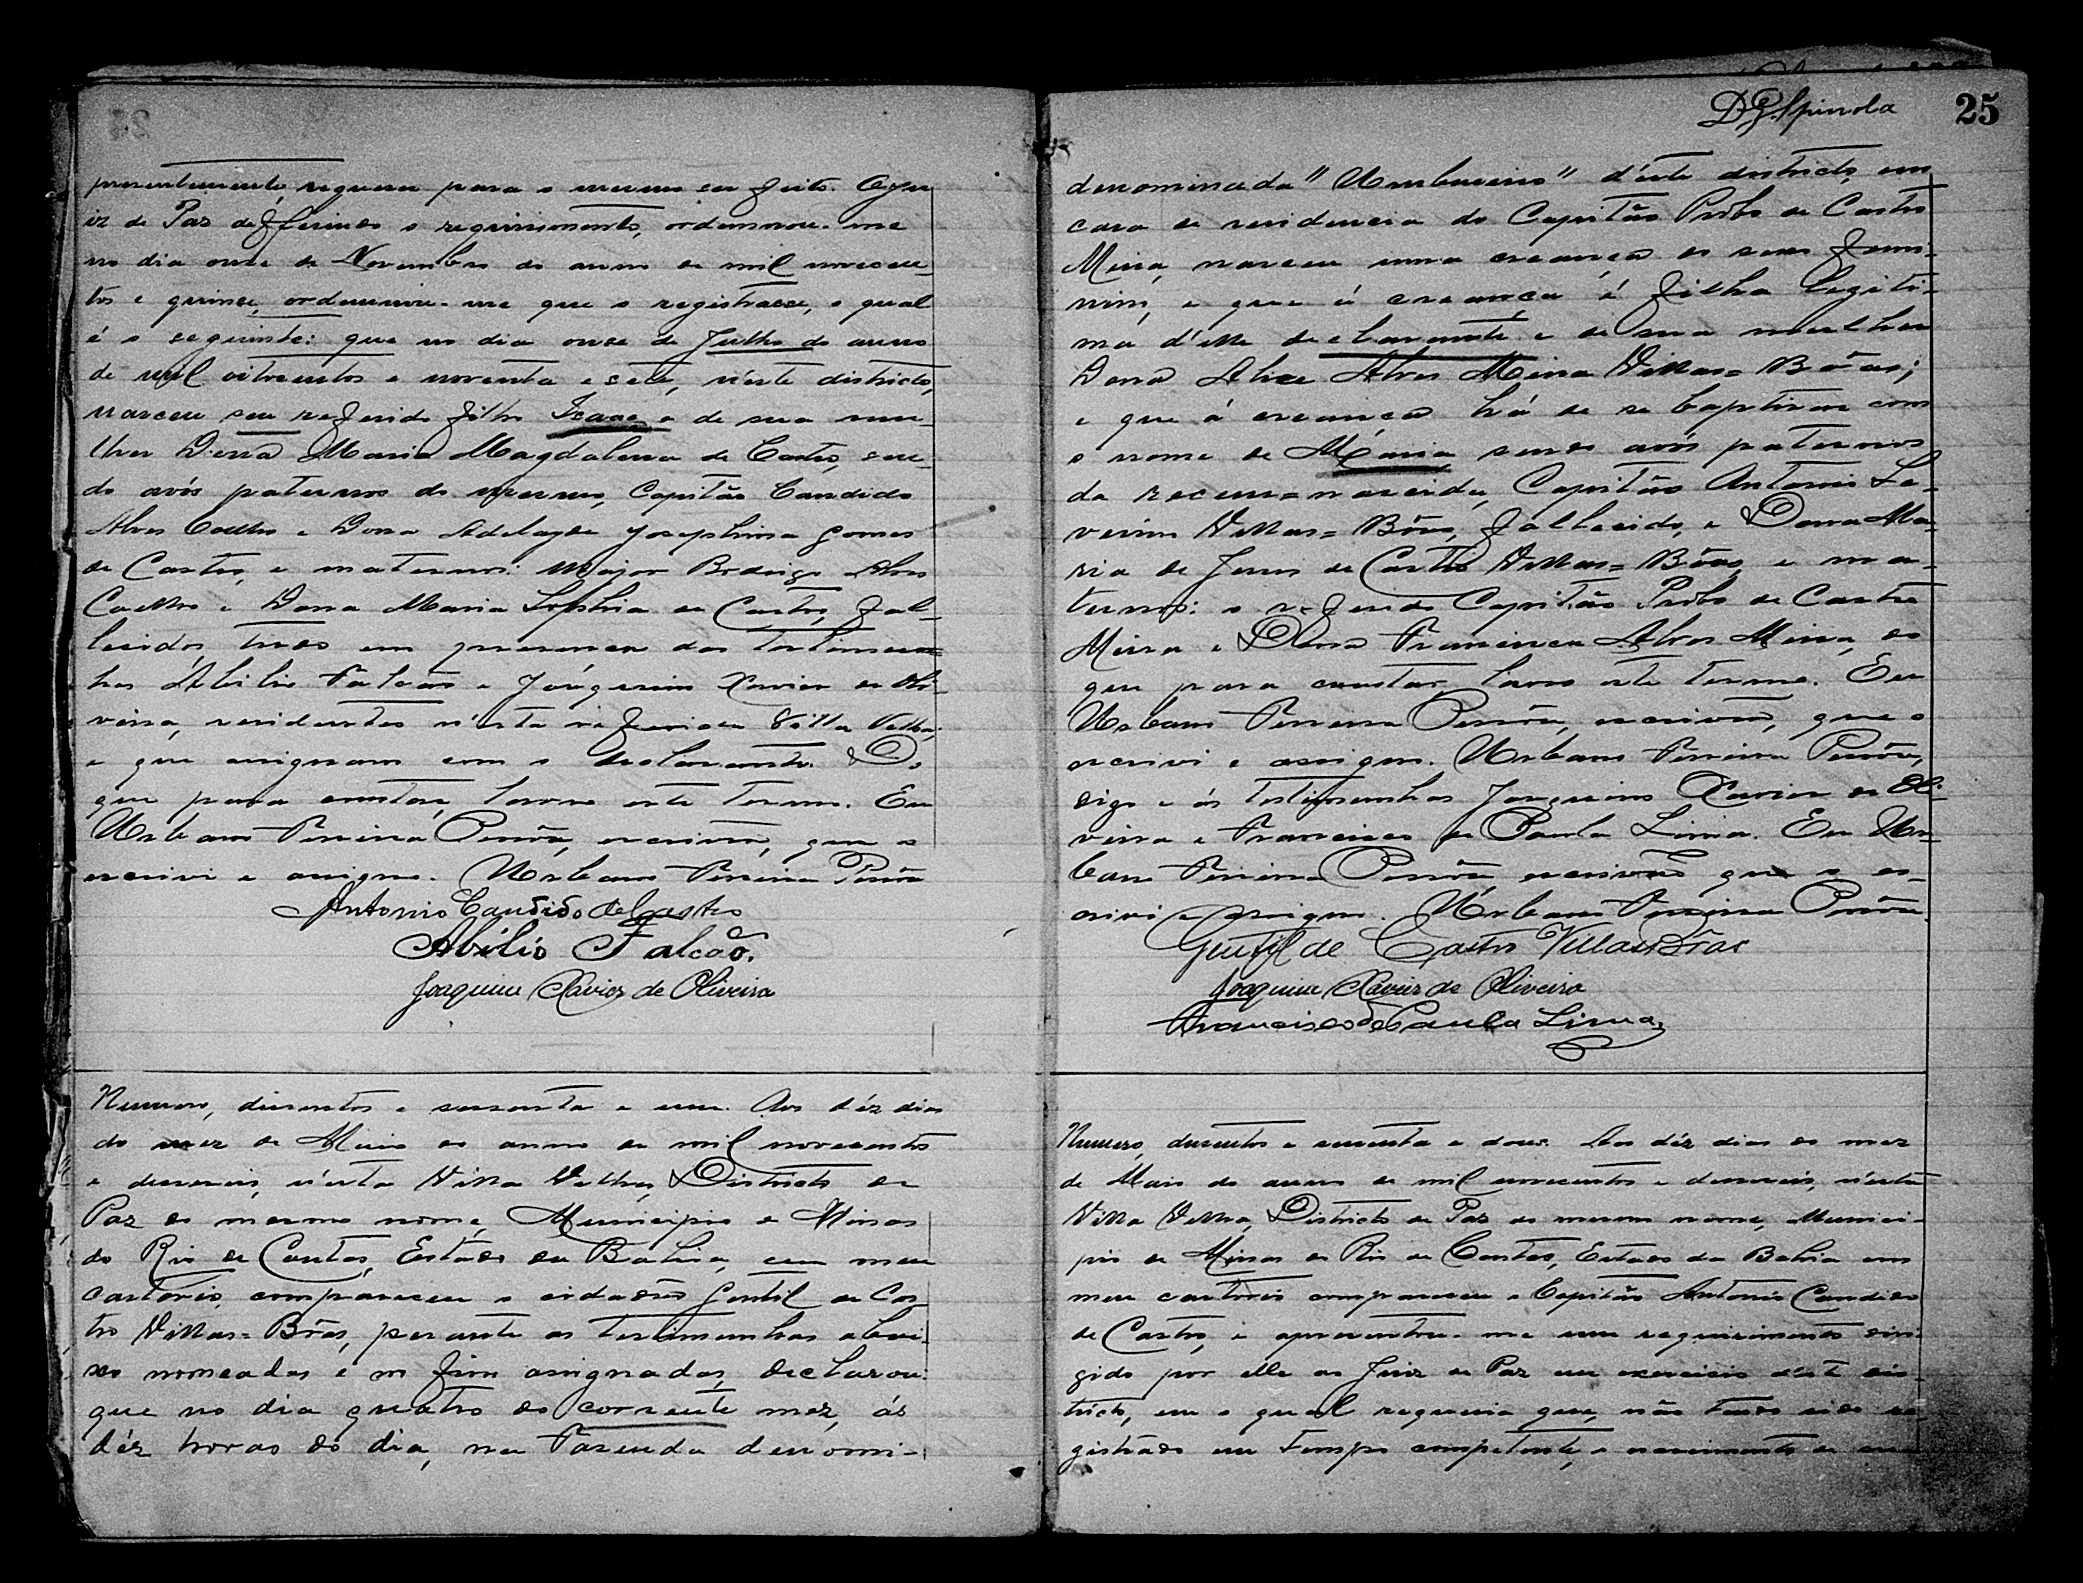 presentemente, requeria para o mesmo ser feito. O Ju-
iz de Paz defferindo o requerimento, ordennou-me
no dia onze de Novembro do anno de mil novecen-
tos e quinze, ordennou-me que o registrasse, o qual
é o seguinte: que no dia onze de Julho do anno
de mil oitocentos e noventa e sete, n'este districto,
nasceu seu referido filho Isaac e de sua mu-
lher Dona Maria Magdalena de Castro, sen-
do avós paternos do mesmo, Capitão Candido
Alves Coelho e Dona Adelayde Josephina Gomes
de Castro, e maternos: Major Rodrigo Alves
Coelho e Dona Maria Sophia de Castro, fal-
lecidos, tudo em presença das testemu-
nhas Abilio Falcão e Joaquim Xavier de Oli-
veira, residentes n'esta referida Villa Velha,
e que assignam com o declarante. Do
que para constar, lavro este termo. Eu
Urbano Ferreira Pessôa, escrivão, que o
escrevi e assigno. Urbano Ferreira Pessôa
Antonio Candido de Castro
Abilio Falcão.
Joaquim Xavier de Oliveira
Numero, dusentos e sessenta e um. Aos déz dias
do mez de Maio do anno de mil novecentos
e deseseis, n'esta Villa Velha, Districto de
Paz do mesmo nome, Municipio de Minas
do Rio de Contas, Estado da Bahia, em meu
cartorio, compareceu o cidadão Gentil de Cas-
tro Villas-Bôas, perante as testimunhas abai-
xo nomeadas e no fim assignadas, declarou:
que no dia quatro do corrente mez, ás
déz horas do dia, na Fazenda denomi-
D. G. Spinola 25
denominada "Umbuseiro" d'este districto, em
casa de residencia do Capitão Probo de Castro
Meira, nasceu uma creança do sexo femi-
nino, e que á creança é filha legiti-
ma d'elle declarante e de sua mulher
Dona Alice Alves Meira Villas-Bôas;
e que á creança há de se baptisar com
o nome de Maria sendo avós paternos
da recem-nascida, Capitão Antonio Se-
verino Villas-Bôas, fallecido, e Dona Ma-
ria de Jesus de Castro Villas-Bôas e ma-
ternos: o referido Capitão Probo de Castro
Meira e Dona Francisca Alves Meira, do
que para constar, lavro este termo. Eu
Urbano Ferreira Pessôa, escrivão, que o
escrevi e assigno. Urbano Ferreira Pessôa,
digo e ás testimunhas Joaquim Xavier de Oli-
veira e Francisco de Paula Lima. Eu Ur-
bano Ferreira Pessôa escrivão que o es-
crivi e assigno. Urbano Ferreira Pessôa.
Gentil de Castro Villas Bôas
Joaquim Xavier de Oliveira
Francisco de Paula Lima
Numero, dusentos e sessenta e dous. Aos déz dias do mez
de Maio do anno de mil novecentos e deseseis, n'esta
Villa Velha, Districto de Paz do mesmo nome, Munici-
pio de Minas do Rio de Contas, Estado da Bahia em
meu cartorio compareceu o Capitão Antonio Candido
de Castro, e apresentou-me um requerimento diri-
gido por elle ao Juiz de Paz em exercicio d'este dis-
tricto, em o qual requeria que, não tendo sido re-
gistrado em tempo competente, o nascimento de seu